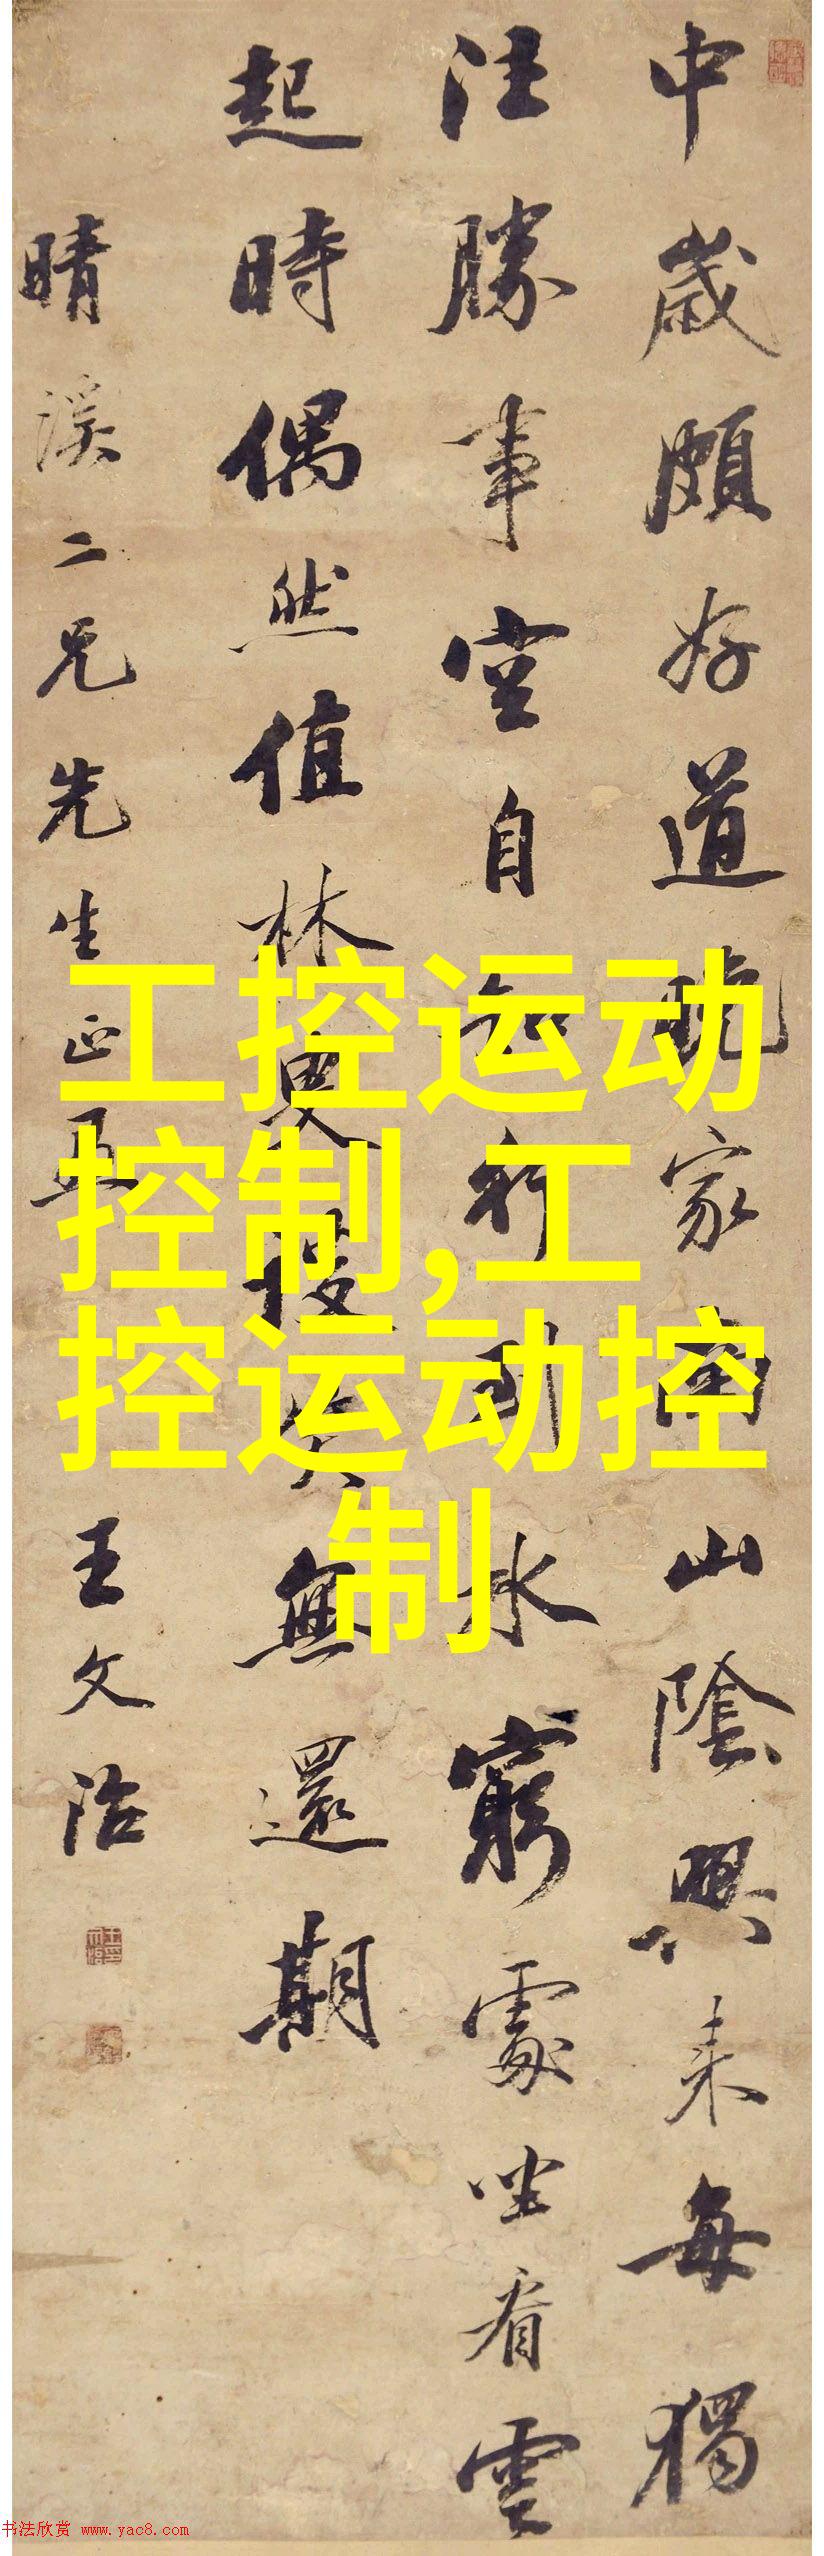 中歲頗好道晚家南山陰興來每獨
往勝事空自知行到水窮處坐看雲
起時偶然值林叟談笑無還期
晴溪二兄先生正
王文治
工控运动
控制,工
控运动控
制
书法欣赏 www.yac8.com